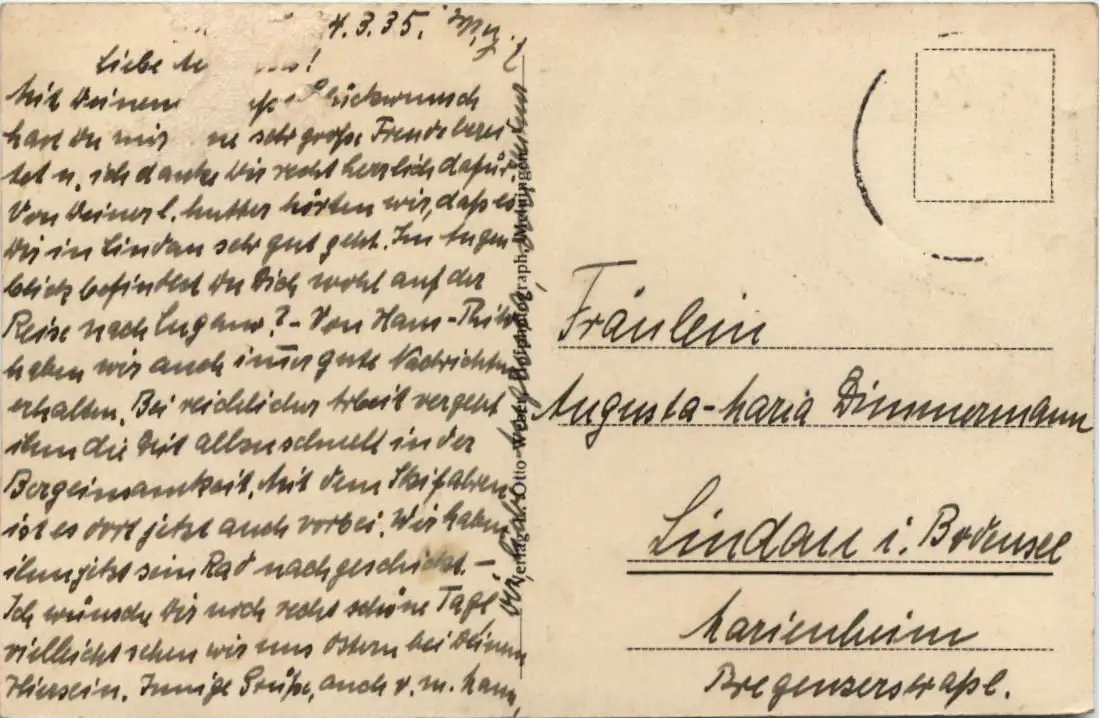 4.3.35.
Liebe
Mit Deinem Glückwunsch
hast Du mir sehr große Freude berei-
tet u. ich danke Dir recht herzlich dafür.
Von Deiner l. Mutter hörten wir, daß es
Dir in Lindau sehr gut geht. Im Augen-
blick befindest Du Dich wohl auf der
Reise nach Lugano? - Von Hans-
haben wir auch im̅er gute Nachrichten
erhalten. Bei reichlicher Arbeit vergeht
ihm die Zeit allzu schnell in der
Bergeinsamkeit. Mit dem Skifahren
ist es dort jetzt auch vorbei. Wir haben
ihm jetzt sein Rad nachgeschickt. -
Ich wünsche Dir noch recht schöne Tage,
vielleicht sehen wir uns Ostern bei Deinem
Hiersein. Innige Grüße, auch v. m. Mann,
Verlag v. Otto Weber, Hofphotograph, Meiningen
Fräulein
Augusta-Maria Dimmermann
Lindau i. Bodensee
Marienheim
Bregenzerstraße.